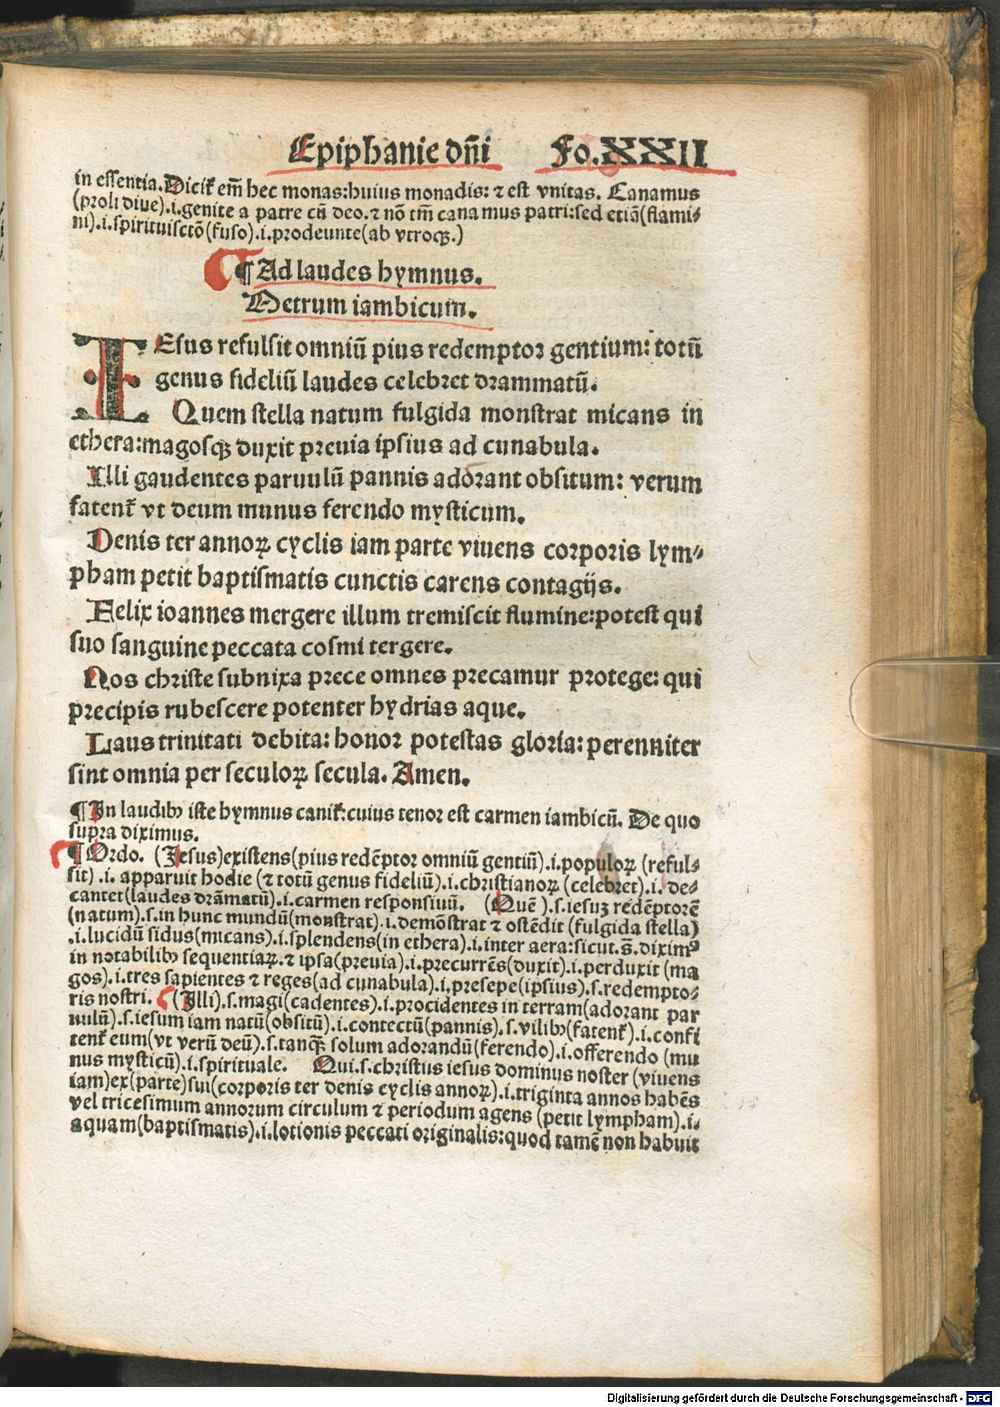 Epiphanie dñi Fo.XXII
in essentia. Diciť em̃ hec monas: huius monadis: ⁊ est vnitas. Canamus
(proli diue).i.genite a patre cũ deo.⁊ nõ tm̃ canamus patri:sed etiã(flami⸗
ni).i.spirituisctõ(fuso).i.prodeunte(ab vtroqꝫ.)
¶ Ad laudes hymnus.
Metrum iambicum.
IEsus refulsit omniũ pius redemptor gentium: totũ
genus fideliũ laudes celebret drammatũ.
Quem stella natum fulgida monstrat micans in
ethera:magosqꝫ duxit preuia ipsius ad cunabula.
Illi gaudentes paruulũ pannis adorant obsitum: verum
fatenť vt deum munus ferendo mysticum.
Denis ter annoꝝ cyclis iam parte viuens corporis lym⸗
pham petit baptismatis cunctis carens contagijs.
Felix ioannes mergere illum tremiscit flumine:potest qui
suo sanguine peccata cosmi tergere.
Nos christe subnixa prece omnes precamur protege: qui
precipis rubescere potenter hydrias aque.
Laus trinitati debita: honor potestas gloria: perenniter
sint omnia per seculoꝝ secula. Amen.
¶ In laudibꝰ iste hymnus caniť:cuius tenor est carmen iambicũ. De quo
supra diximus.
¶ Ordo. (Iesus)existens(pius redẽptor omniũ gentiũ).i.populoꝝ (reful⸗
sit) .i. apparuit hodie (⁊ totũ genus fideliũ).i.christianoꝝ (celebret).i. de⸗
cantet(laudes drãmatũ).i.carmen responsiuũ. (Quẽ).s.iesuꝫ redẽptorẽ
(natum).s.in hunc mundũ(monstrat).i.demõstrat ⁊ ostẽdit (fulgida stella)
.i.lucidũ sidus(micans).i.splendens(in ethera).i.inter aera:sicut.s̃.diximꝰ
in notabilibꝰ sequentiaꝝ.⁊ ipsa(preuia).i.precurrẽs(duxit).i.perduxit (ma
gos).i.tres sapientes ⁊ reges(ad cunabula).i.presepe(ipsius).s.redempto⸗
ris nostri. ¶ (Illi).s.magi(cadentes).i.procidentes in terram(adorant par
uulũ).s.iesum iam natũ(obsitũ).i.contectũ(pannis).s.vilibꝰ(fatenť).i.confi
tenť eum(vt verũ deũ).s.tanqꝫ̃ solum adorandũ(ferendo).i.offerendo (mu
nus mysticũ).i.spirituale. Qui.s.christus iesus dominus noster (viuens
iam)ex(parte)sui(corporis ter denis cyclis annoꝝ).i.triginta annos habẽs
vel tricesimum annorum circulum ⁊ periodum agens (petit lympham).i.
aquam(baptismatis).i.lotionis peccati originalis:quod tamẽ non habuit
Digitalisierung gefördert durch die Deutsche Forschungsgemeinschaft - DFG